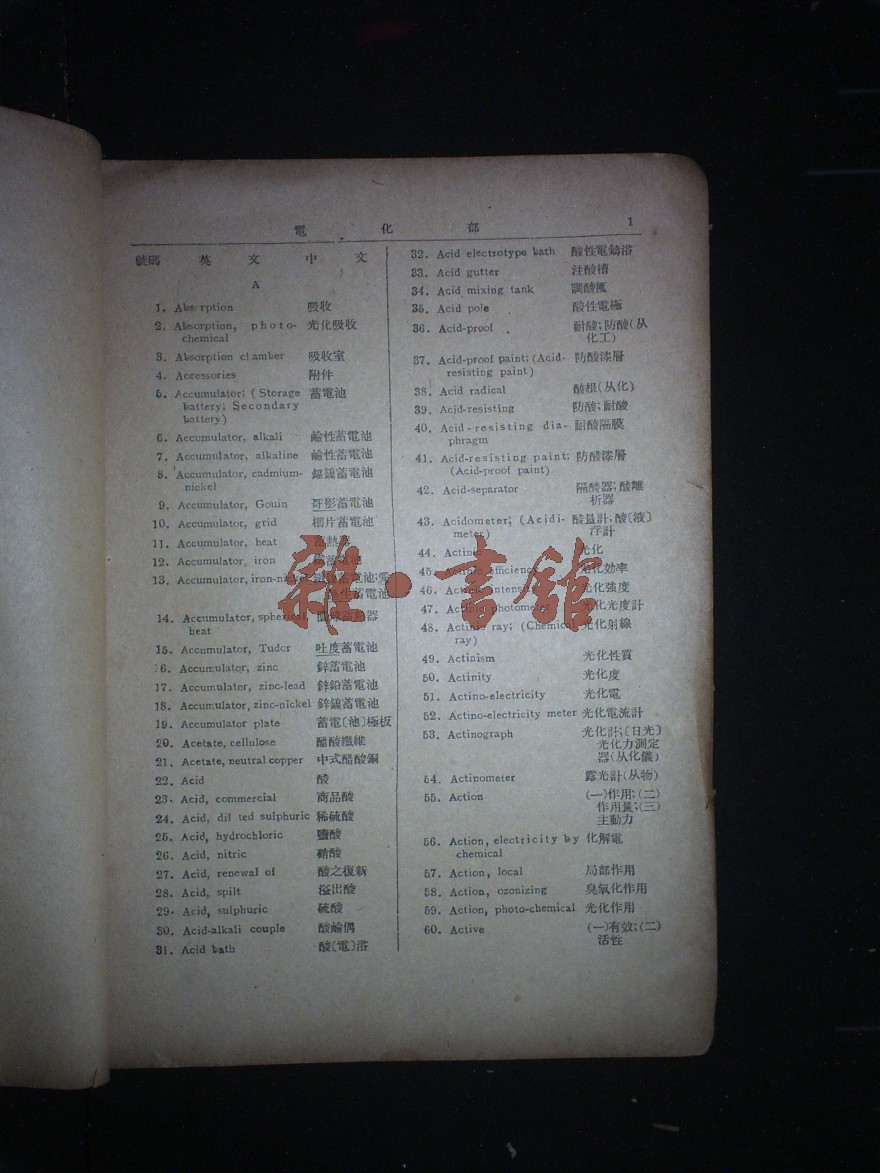 電 化 部 1
號碼 英 文 中 文
A
1. Abs rption 吸收
2. Absorption, photo- 光化吸收
chemical
3. Absorption chamber 吸收室
4. Accessories 附件
5. Accumulator; (Storage 蓄電池
battery; Secondary
battery)
6. Accumulator, alkali 鹼性蓄電池
7. Accumulator, alkaline 鹼性蓄電池
8. Accumulator, cadmium- 鎘鎳蓄電池
nickel
9. Accumulator, Gouin 哥影蓄電池
10. Accumulator, grid 柵片蓄電池
11. Accumulator, heat
12. Accumulator, iron
13. Accumulator, iron-nickel
14. Accumulator, spherical
heat
15. Accumulator, Tudor 吐度蓄電池
16. Accumulator, zinc 鋅蓄電池
17. Accumulator, zinc-lead 鋅鉛蓄電池
18. Accumulator, zinc-nickel 鋅鎳蓄電池
19. Accumulator plate 蓄電〔池〕極板
20. Acetate, cellulose 醋酸纖維
21. Acetate, neutral copper 中式醋酸銅
22. Acid 酸
23. Acid, commercial 商品酸
24. Acid, dil ted sulphuric 稀硫酸
25. Acid, hydrochloric 鹽酸
26. Acid, nitric 硝酸
27. Acid, renewal of 酸之復新
28. Acid, spilt 溢出酸
29. Acid, sulphuric 硫酸
30. Acid-alkali couple 酸鹼偶
31. Acid bath 酸〔電〕浴
32. Acid electrotype bath 酸性電鑄浴
33. Acid gutter 注酸槽
34. Acid mixing tank 調酸匱
35. Acid pole 酸性電極
36. Acid-proof 耐酸;防酸(从
化工)
37. Acid-proof paint; (Acid- 防酸漆層
resisting paint)
38. Acid radical 酸根(从化)
39. Acid-resisting 防酸;耐酸
40. Acid-resisting dia- 耐酸隔膜
phragm
41. Acid-resisting paint; 防酸漆層
(Acid-proof paint)
42. Acid-separator 隔酸器;酸離
析器
43. Acidometer; (Acidi- 酸量計;酸〔液〕
meter) 浮計
44. Actinic 光化
45. Actinic efficiency 光化效率
46. Actinic intensity 光化強度
47. Actinic photometer 光化光度計
48. Actinic ray; (Chemical 光化射線
ray)
49. Actinism 光化性質
50. Actinity 光化度
51. Actino-electricity 光化電
52. Actino-electricity meter 光化電流計
53. Actinograph 光化計;〔日光〕
光化力測定
器(从化儀)
54. Actinometer 露光計(从物)
55. Action (一)作用;(二)
作用量;(三)
主動力
56. Action, electricity by 化解電
chemical
57. Action, local 局部作用
58. Action, ozonizing 臭氧化作用
59. Action, photo-chemical 光化作用
60. Active (一)有效;(二)
活性
雜·書館